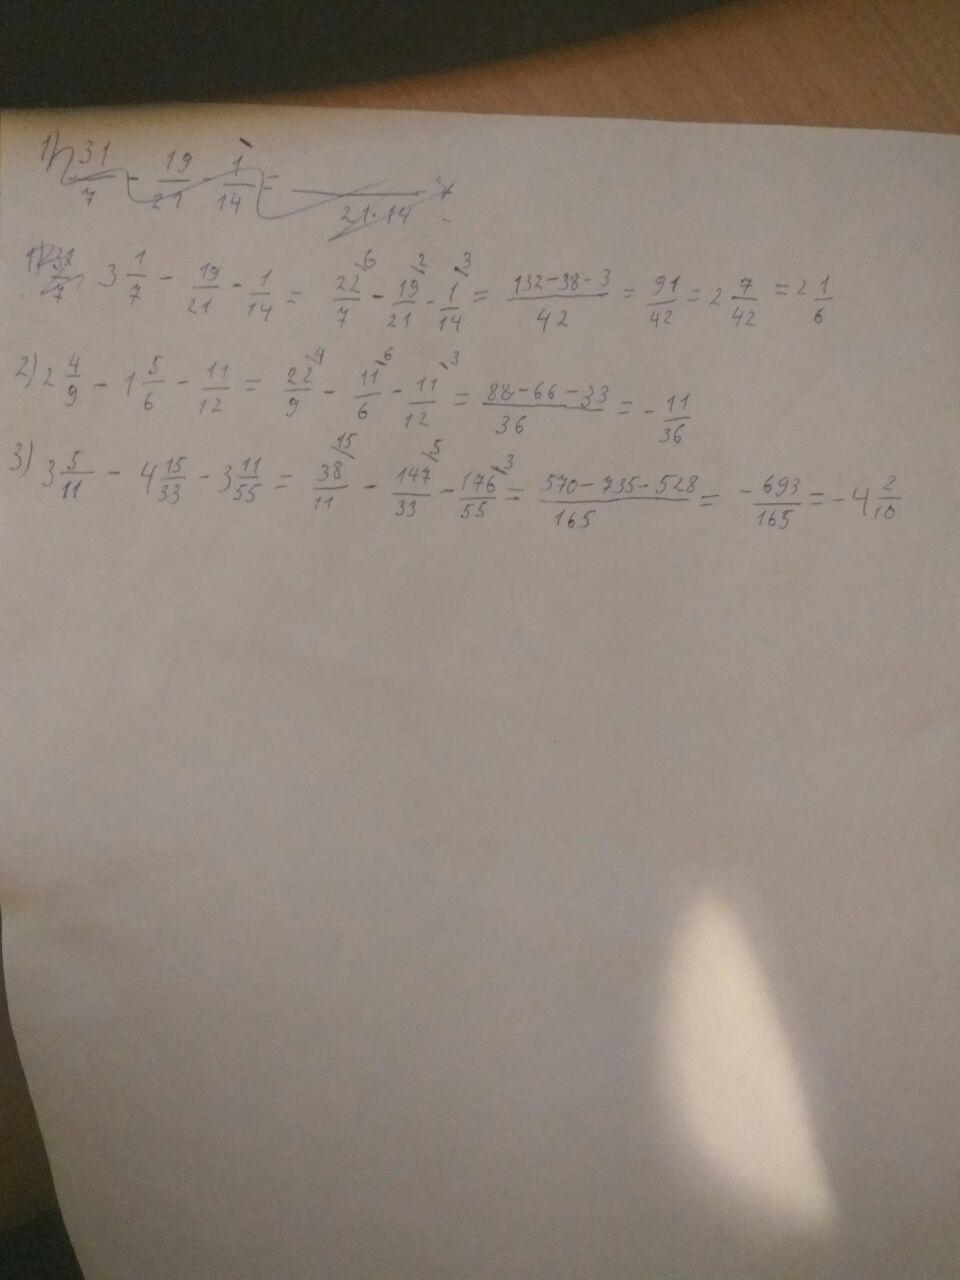 1) 31/7 - 19/21 - 1/14 = 21·14
1) 31/7 3 1/7 - 19/21 - 1/14 = 22/7 - 19/21 - 1/14 = (132-38-3)/42 = 91/42 = 2 7/42 = 2 1/6
2) 2 4/9 - 1 5/6 - 11/12 = 22/9 - 11/6 - 11/12 = (88-66-33)/36 = - 11/36
3) 3 5/11 - 4 15/33 - 3 11/55 = 38/11 - 147/33 - 176/55 = (570-735-528)/165 = -693/165 = -4 2/10